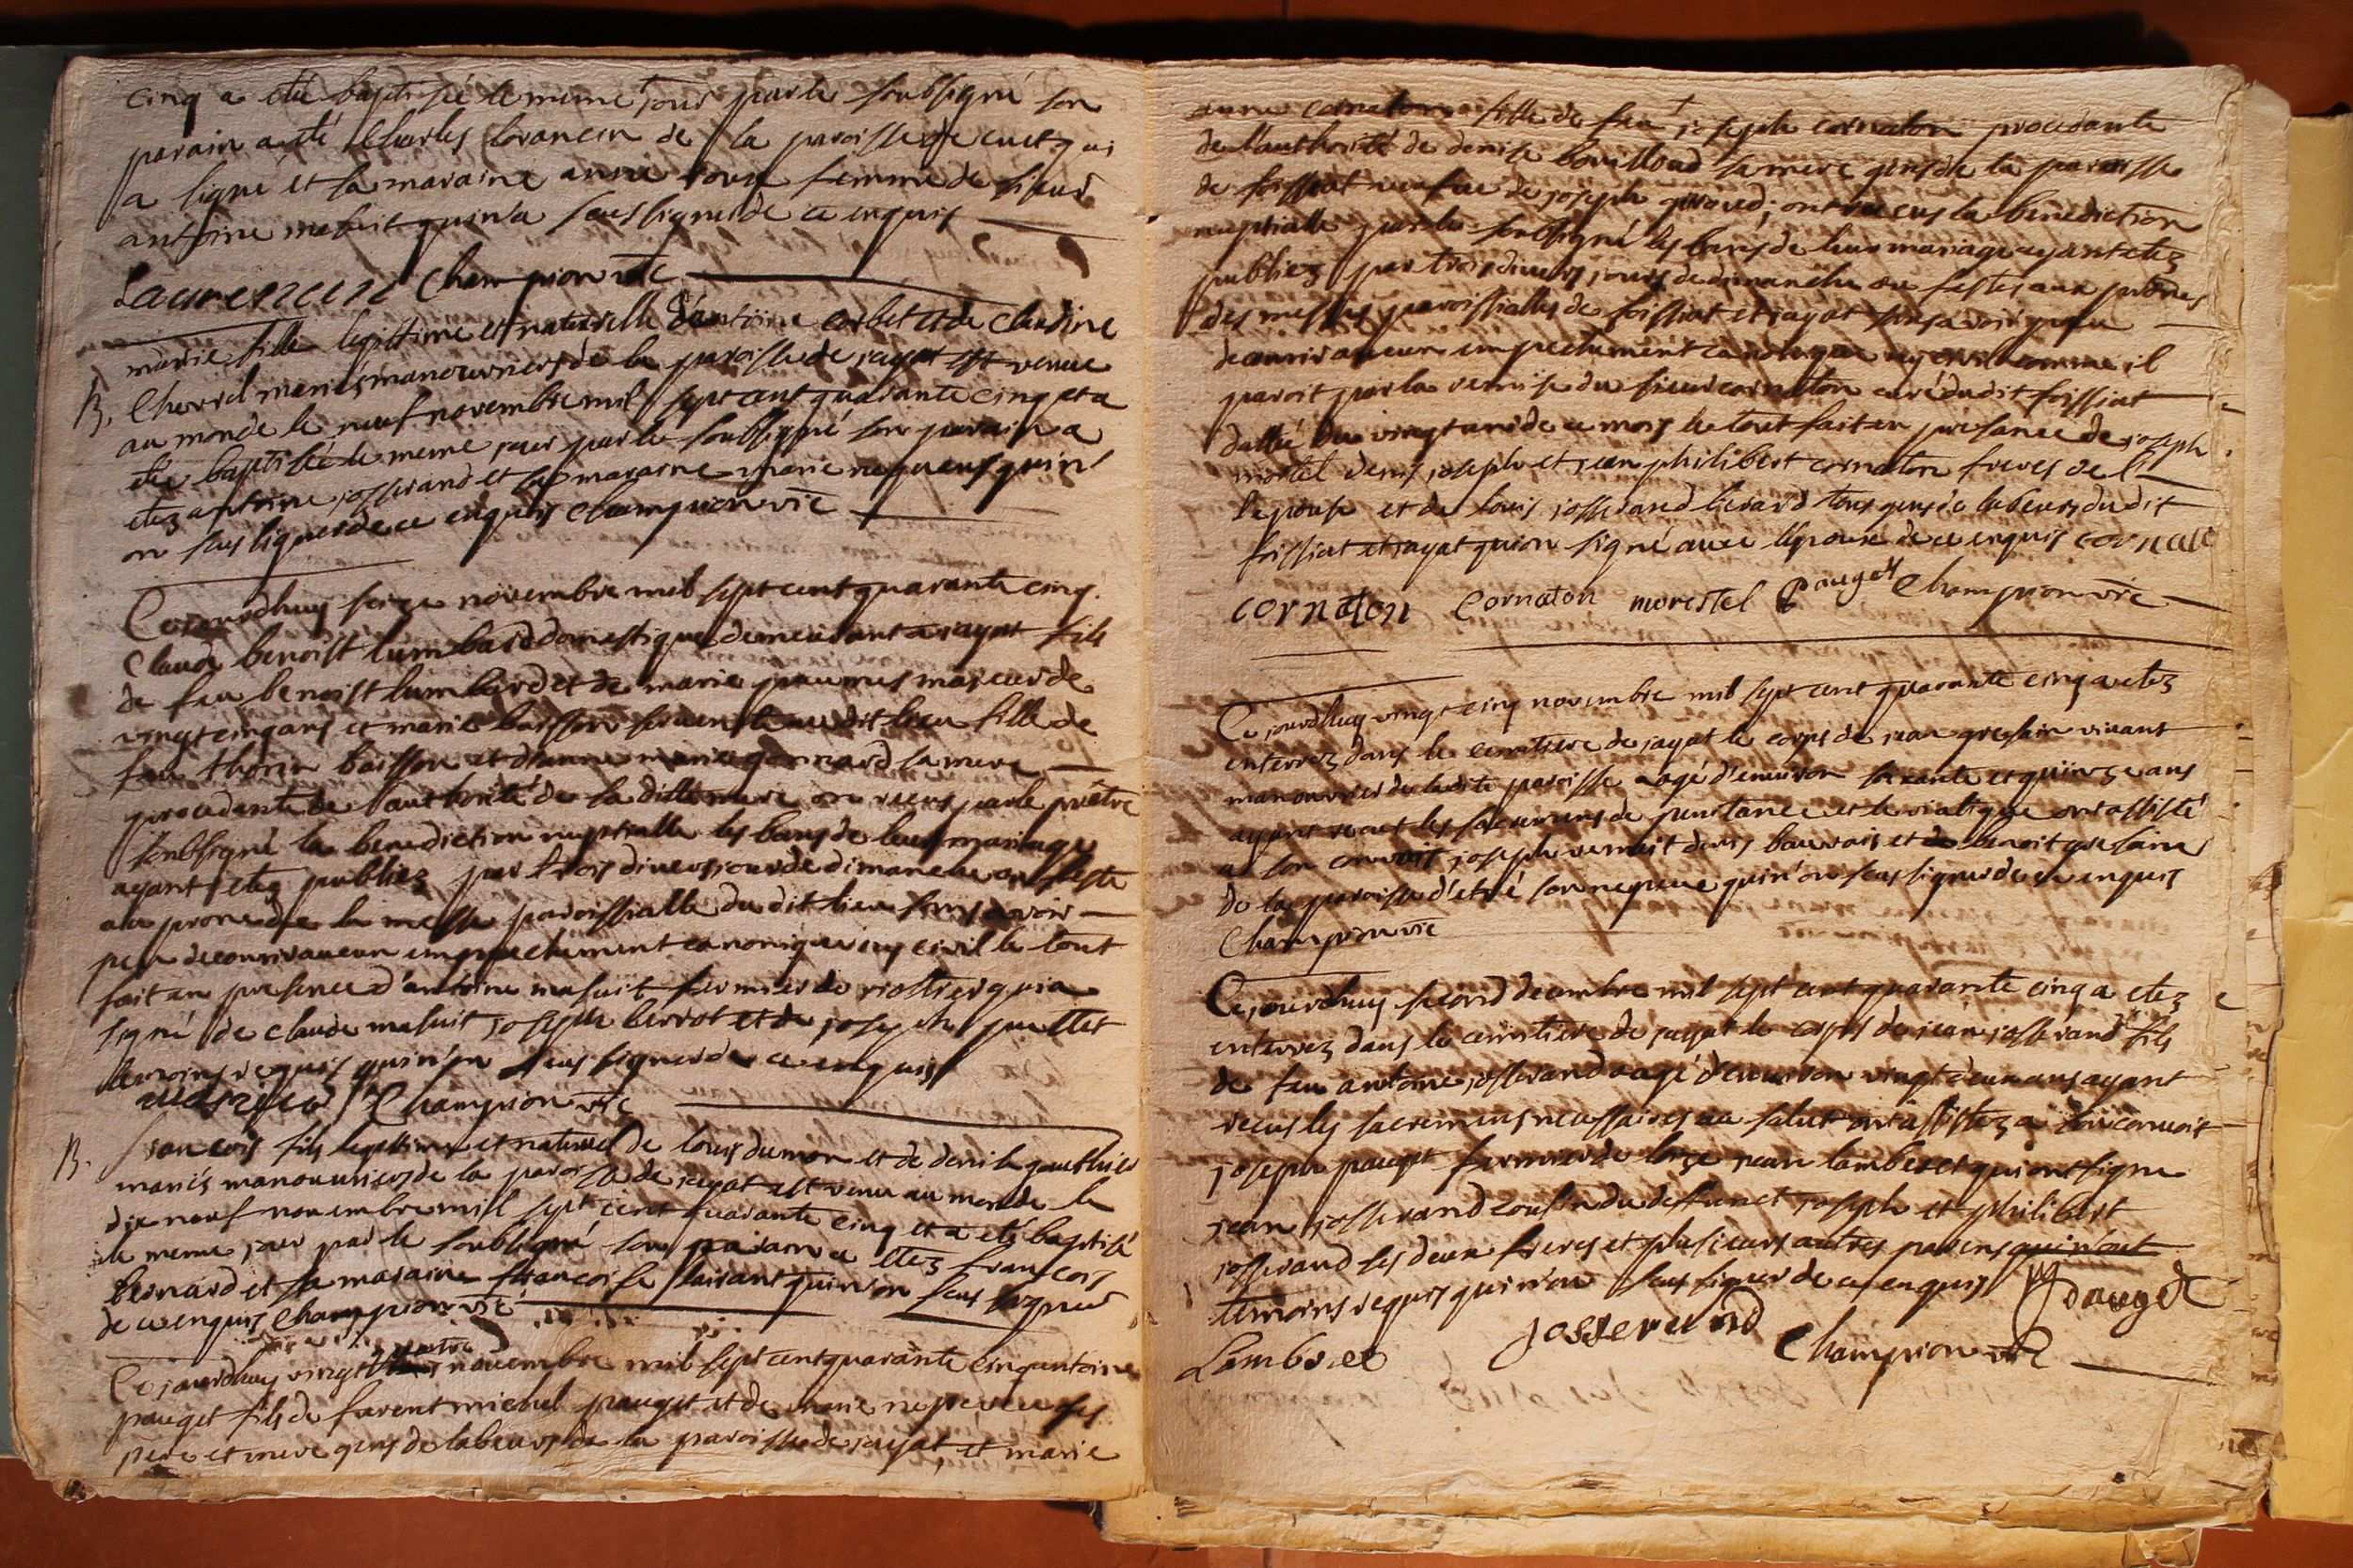 cinq a eté baptisée le meme jour par le soubsigné son
parain a eté Charles lorancin de la paroisse de cuet qui
a signé et sa maraine anne femme de sieur
antoine mafuit qui n'a seus signer de ce enquis
Laurencin Champion vic
marie fille legittime et naturelle d'antoine corbet et de claudine
B. Chevrel mariés manouvriers de la paroisse de jayat est venue
au monde le neuf novembre mil sept cent quarante cinq et a
été baptisée le meme jour par le soubsigné son parain a
etez antoine josserand et sa maraine marie nequeus qui n'
on seus signer de ce enquis Champion vic
Cejourdhuy seize novembre mil sept cent quarante cinq
Claude benoist lumbard domestique demeurant a jayat fils
de feu benoist lumbard et de marie majeur de
vingt cinq ans et marie baisson servente au dit lieu fille de
feu baisson et d'anne marie gonnard sa mere
procedante de l'authorité de sa ditte mere on receus par le pretre
soubsigné la benediction nuptialle les bans de leur mariage
ayant etez publiez par trois divers jour de dimanche ou feste
au prone de la messe paroissialle du dit lieu sans avoir
peu decouvrir aucun empechement canonique ny civil le tout
fait en presence d'antoine mafuit fermier de qui a
signé de claude mafuit joseph berrot et de joseph
temoins requis qui n'on seus signer de ce enquis
Champion vic
B. francois fils legittime et naturel de louis dumon et de denise gauthier
mariés manouvriers de la paroisse de jayat est venu au monde le
dix neuf novembre mil sept cent quarante cinq et a eté baptisé
le meme jour par le soubsigné son parain a etez francois
bernard et sa maraine francoise qui n'on seus signer
de ce enquis Champion vic
Cejourdhuy vingt quatre novembre mil sept cent quarante cinq antoine
pauget fils de michel pauget et de marie nepveu ses
pere et mere gens de labeurs de la paroisse de jayat, et marie
anne cornaton fille de feu joseph cornaton procedante
de l'authorité de denise bouilloud sa mere gens de la paroisse
de foissiat veufue de joseph ont receus la benediction
nuptialle par le soubsigné les bans de leur mariage ayant etez
publiez par trois divers jours de dimanche ou festes aux prones
des messes paroissialles de foissiat et jayat sans avoir peu
decouvrir aucun empechement canonique ny civil comme il
paroit par la remise du sieur cornaton curé dudit foissiat
dattée du vingt un de ce mois le tout fait en presance de joseph
morestel denis joseph et jean philibert cornaton freres de l
l'epouse et de louis josserand tous gens de labeurs dudit
foissiat et jayat qui on signé avec l'epouse de ce enquis cornate
cornaton Cornaton morestel Pauget Champion vic
Cejourdhuy vingt cinq novembre mil sept cent quarante cinq a etez
enterrez dans le cemitiere de jayat le corps de jean vivant
manouvrier de ladite paroisse aagé d'environ soixante et quinze ans
ayant receut les sacremens de penitance et le viatique ont assisté
a son convois joseph denis beauvais et de benoit
de la paroisse d'etré son nepveu qui n'on seus signer de ce enquis
Champion vic
Cejourdhuy second decembre mil sept cent quarante cinq a etez
enterrez dans le cemitiere de jayat le corps de jean josserand fils
de feu antoine josserand aagé d'environ vingt deux ans ayant
receus les sacremens necessaires au salut ont assistez a son convois
joseph pauget fermier de jean lamberet qui ont signe
jean josserand cousin du deffunct joseph et philibert
josserand ses deux freres et plusieurs autres parens qui n'ont
temoins requis qui n'on seus signer de ce enquis Pauget
Lamberet josserand Champion vic